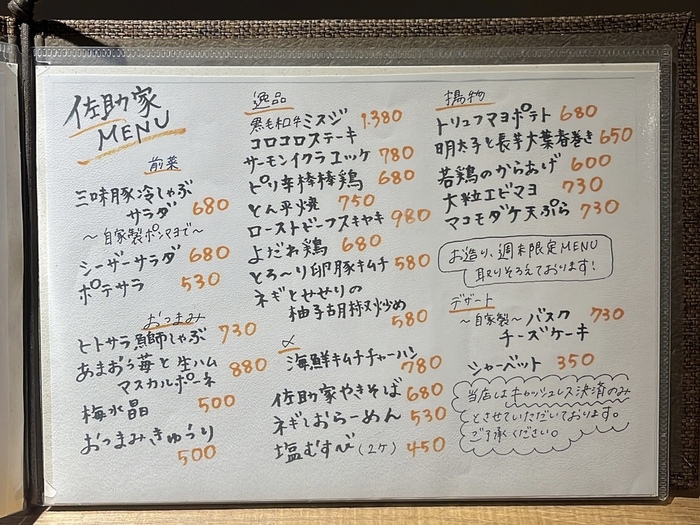 佐助家
MENU
前菜
三味豚冷しゃぶ
サラダ 680
〜自家製ポンマヨで〜
シーザーサラダ 680
ポテサラ 530
おつまみ
ヒトサラ魚師しゃぶ 730
あまおう苺と生ハム
マスカルポーネ 880
梅水晶 500
おつまみきゅうり
500
逸品
黒毛和牛ミスジ 1.380
コロコロステーキ
サーモンイクラユッケ 780
ピリ辛棒棒鶏 680
とん平焼 750
ローストビーフスキヤキ 980
よだれ鶏 680
とろ〜り卵豚キムチ 580
ネギとせせりの
柚子胡椒炒め
580
〆
海鮮キムチチャーハン
780
佐助家やきそば 680
ネギしおらーめん 530
塩むすび(2ケ) 450
揚物
トリュフマヨポテト 680
明太子と長芋大葉春巻き 650
若鶏のからあげ 600
大粒エビマヨ 730
マコモダケ天ぷら 730
お造り、週末限定MENU
取りそろえております!
デザート
〜自家製〜バスク 730
チーズケーキ
シャーベット 350
当店はキャッシュレス決済のみ
とさせていただいております。
ご了承ください。